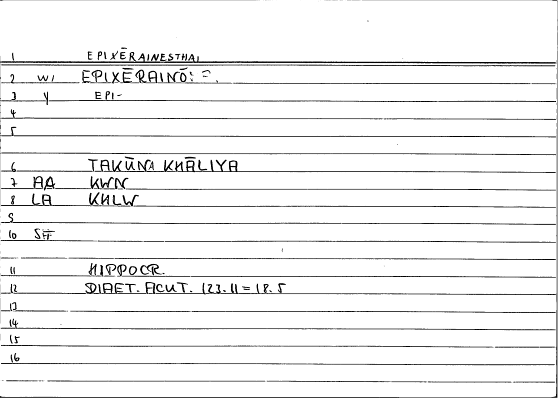 1 EPIXĒRAINESTHAI
2 WI EPIXĒRAINŌ: =.
3 Y EPI-
4
5
6 TAKŪNA KHĀLIYA
7 AA KWN
8 LA KHLW
9
10 SĦ
11 HIPPOCR.
12 DIAET. ACUT. 123.11 = 18.5
13
14
15
16